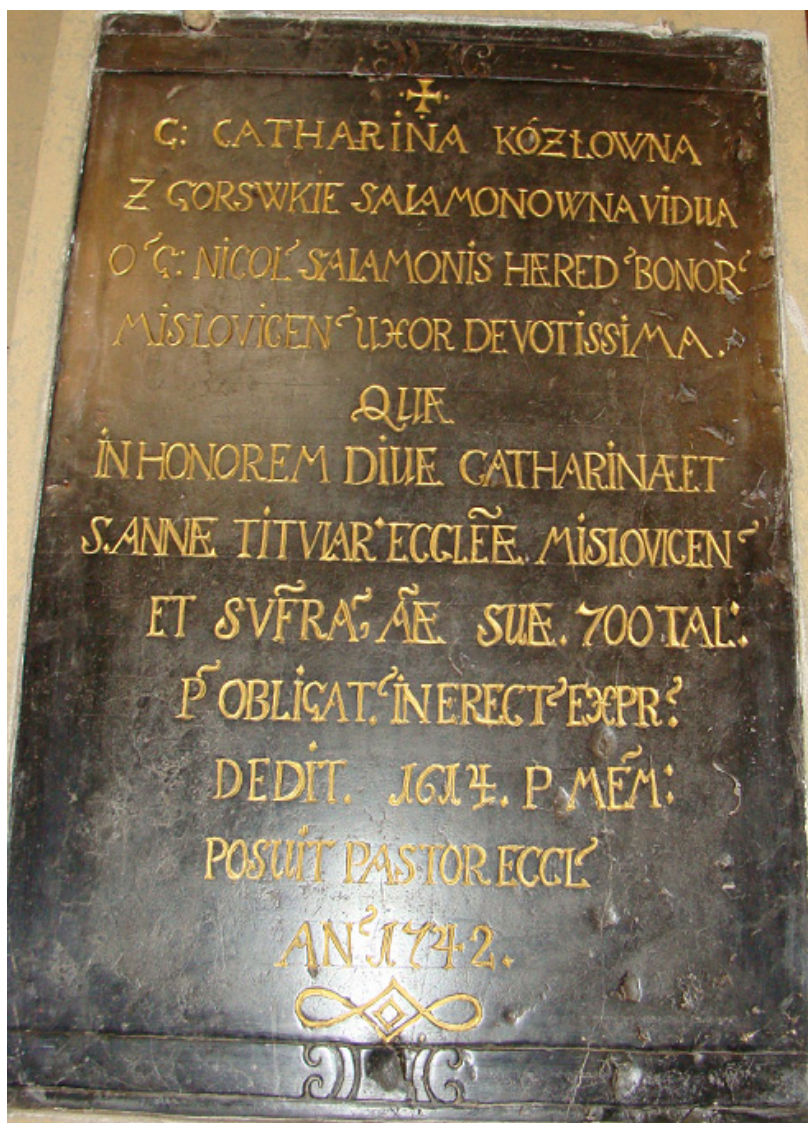 G: CATHARINA KÓZŁOWNA
Z GORSWKIE SALAMONOWNA VIDUA
O˜ G: NICOL˜ SALAMONIS HÆRED˜ BONOR˜
MISLOVICEN˜ UXOR DEVOTISSIMA.
QUÆ
IN HONOREM DIUÆ CATHARINÆ ET
S. ANNÆ TITVIAR˜ ECCLẼÆ MISLOVICEN˜
ET SVF̃RA˜, ÃÆ SUÆ. 700 TAL:
P̃ OBLIGAT.˜ IN ERECT˜ EXPR:˜
DEDIT. 1614. P MẼM:
POSUIT PASTOR ECCL˜
AN˜ 1742.